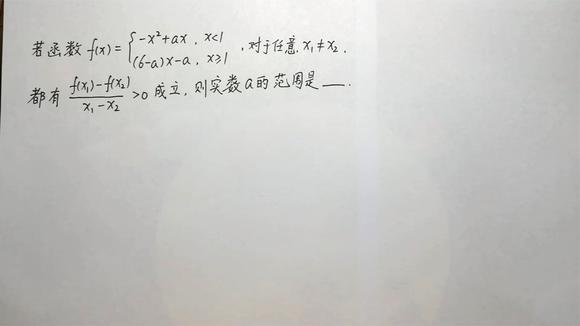 若函数 f(x)={-x²+ax, x<1 (6-a)x-a, x≥1 ,对于任意 x₁≠x₂,
都有 \frac{f(x₁)-f(x₂)}{x₁-x₂}>0 成立,则实数a的范围是 ___.